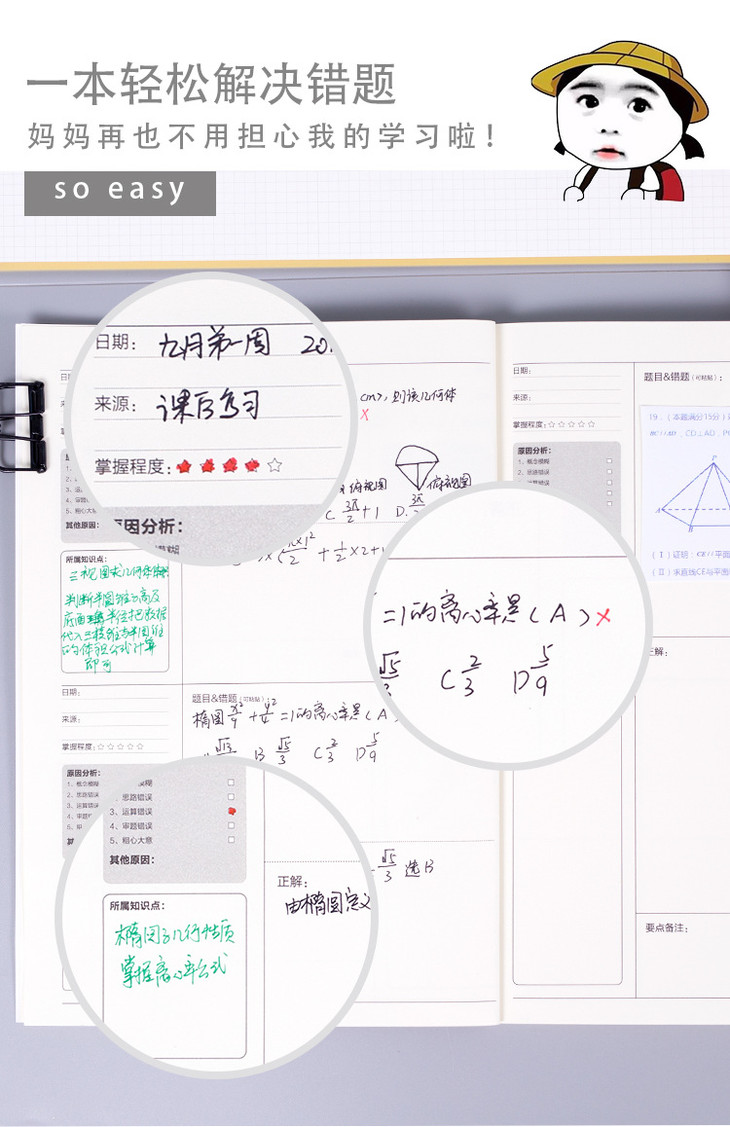 一本轻松解决错题
妈妈再也不用担心我的学习啦!
so easy
日期: 九月第一周 20
来源: 课后复习
掌握程度: ☆
cm), 则该几何体
×
俯视图
C. 3π/2 + 1 D. 3π
原因分析:
其他原因:
所属知识点:
三视图求几何体体积
判断半圆锥高及
的体积公式计算
即可
=1的离心率是(A)×
√5/3 C 2/3 D 5/9
日期:
来源:
掌握程度: ☆☆☆☆☆
原因分析:
1、概念模糊
2、思路错误
3、运算错误
题目&错题(可粘贴):
椭圆 x²/9 + y²/4 =1的离心率是(A
B √5/3 C 2/3 D 5/9
思路错误
3、运算错误
4、审题错误
5、粗心大意
其他原因:
所属知识点:
椭圆的几何性质
掌握离心率公式
√5/3 选B
正解:
由椭圆定义
日期:
来源:
掌握程度: ☆☆☆☆☆
原因分析:
1、概念模糊
2、思路错误
题目&错题(可粘贴):
19.(本题满分15分)
BC//AD, CD⊥AD, P
P
A
B
(Ⅰ)证明: CE//平面
(Ⅱ)求直线CE与平面
正解:
要点备注: